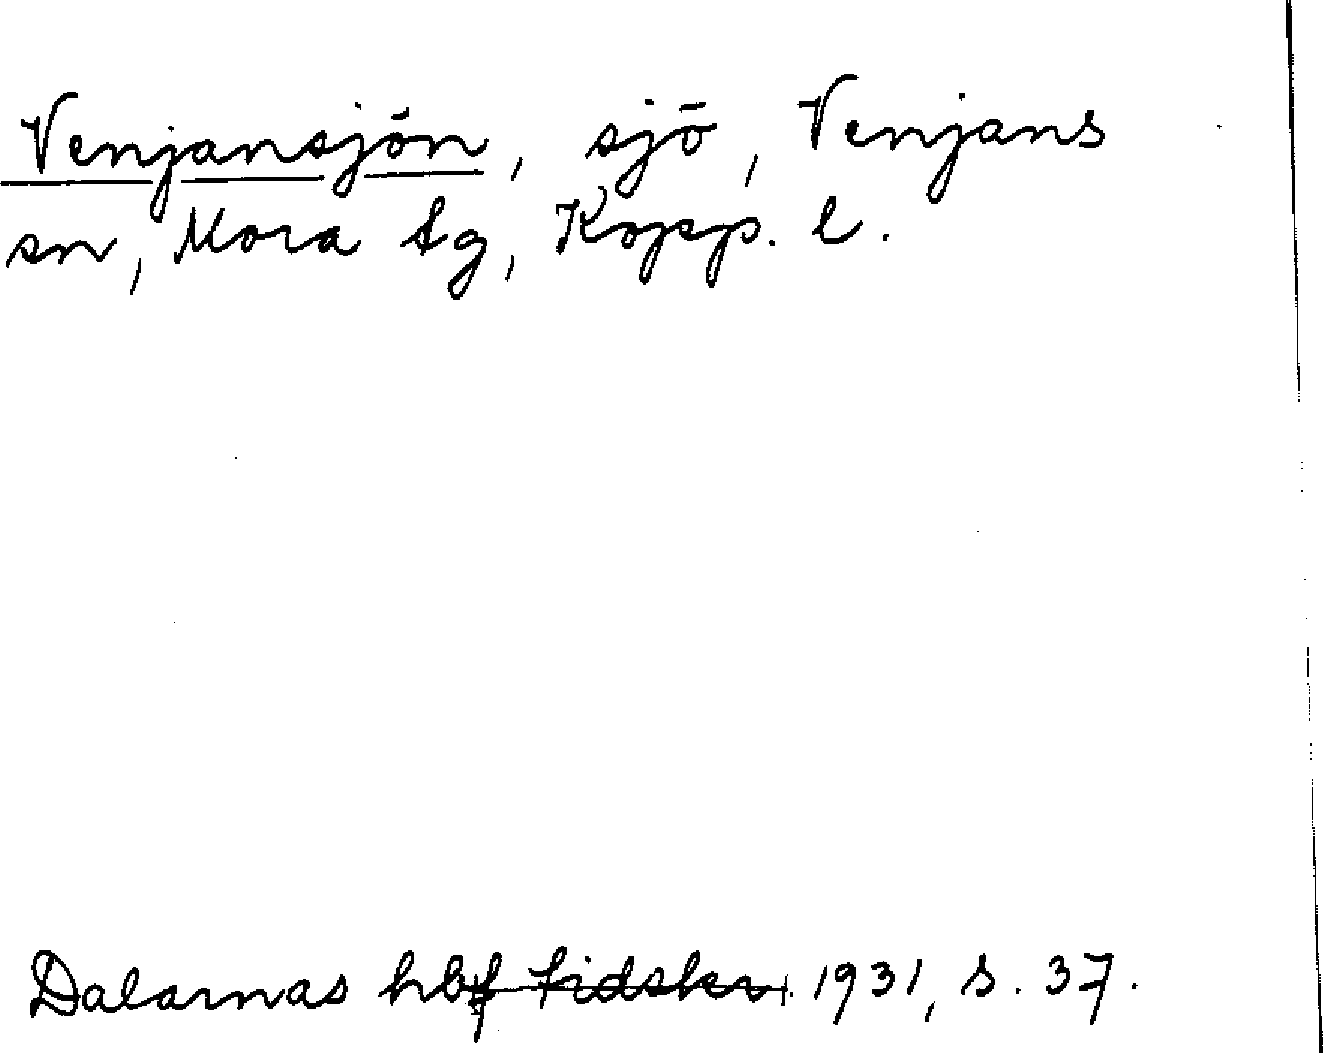 Venjansjön, sjö, Venjans
sn, Mora tg, Kopp. l.
Dalarnas hbf tidskr. 1931, s. 37.